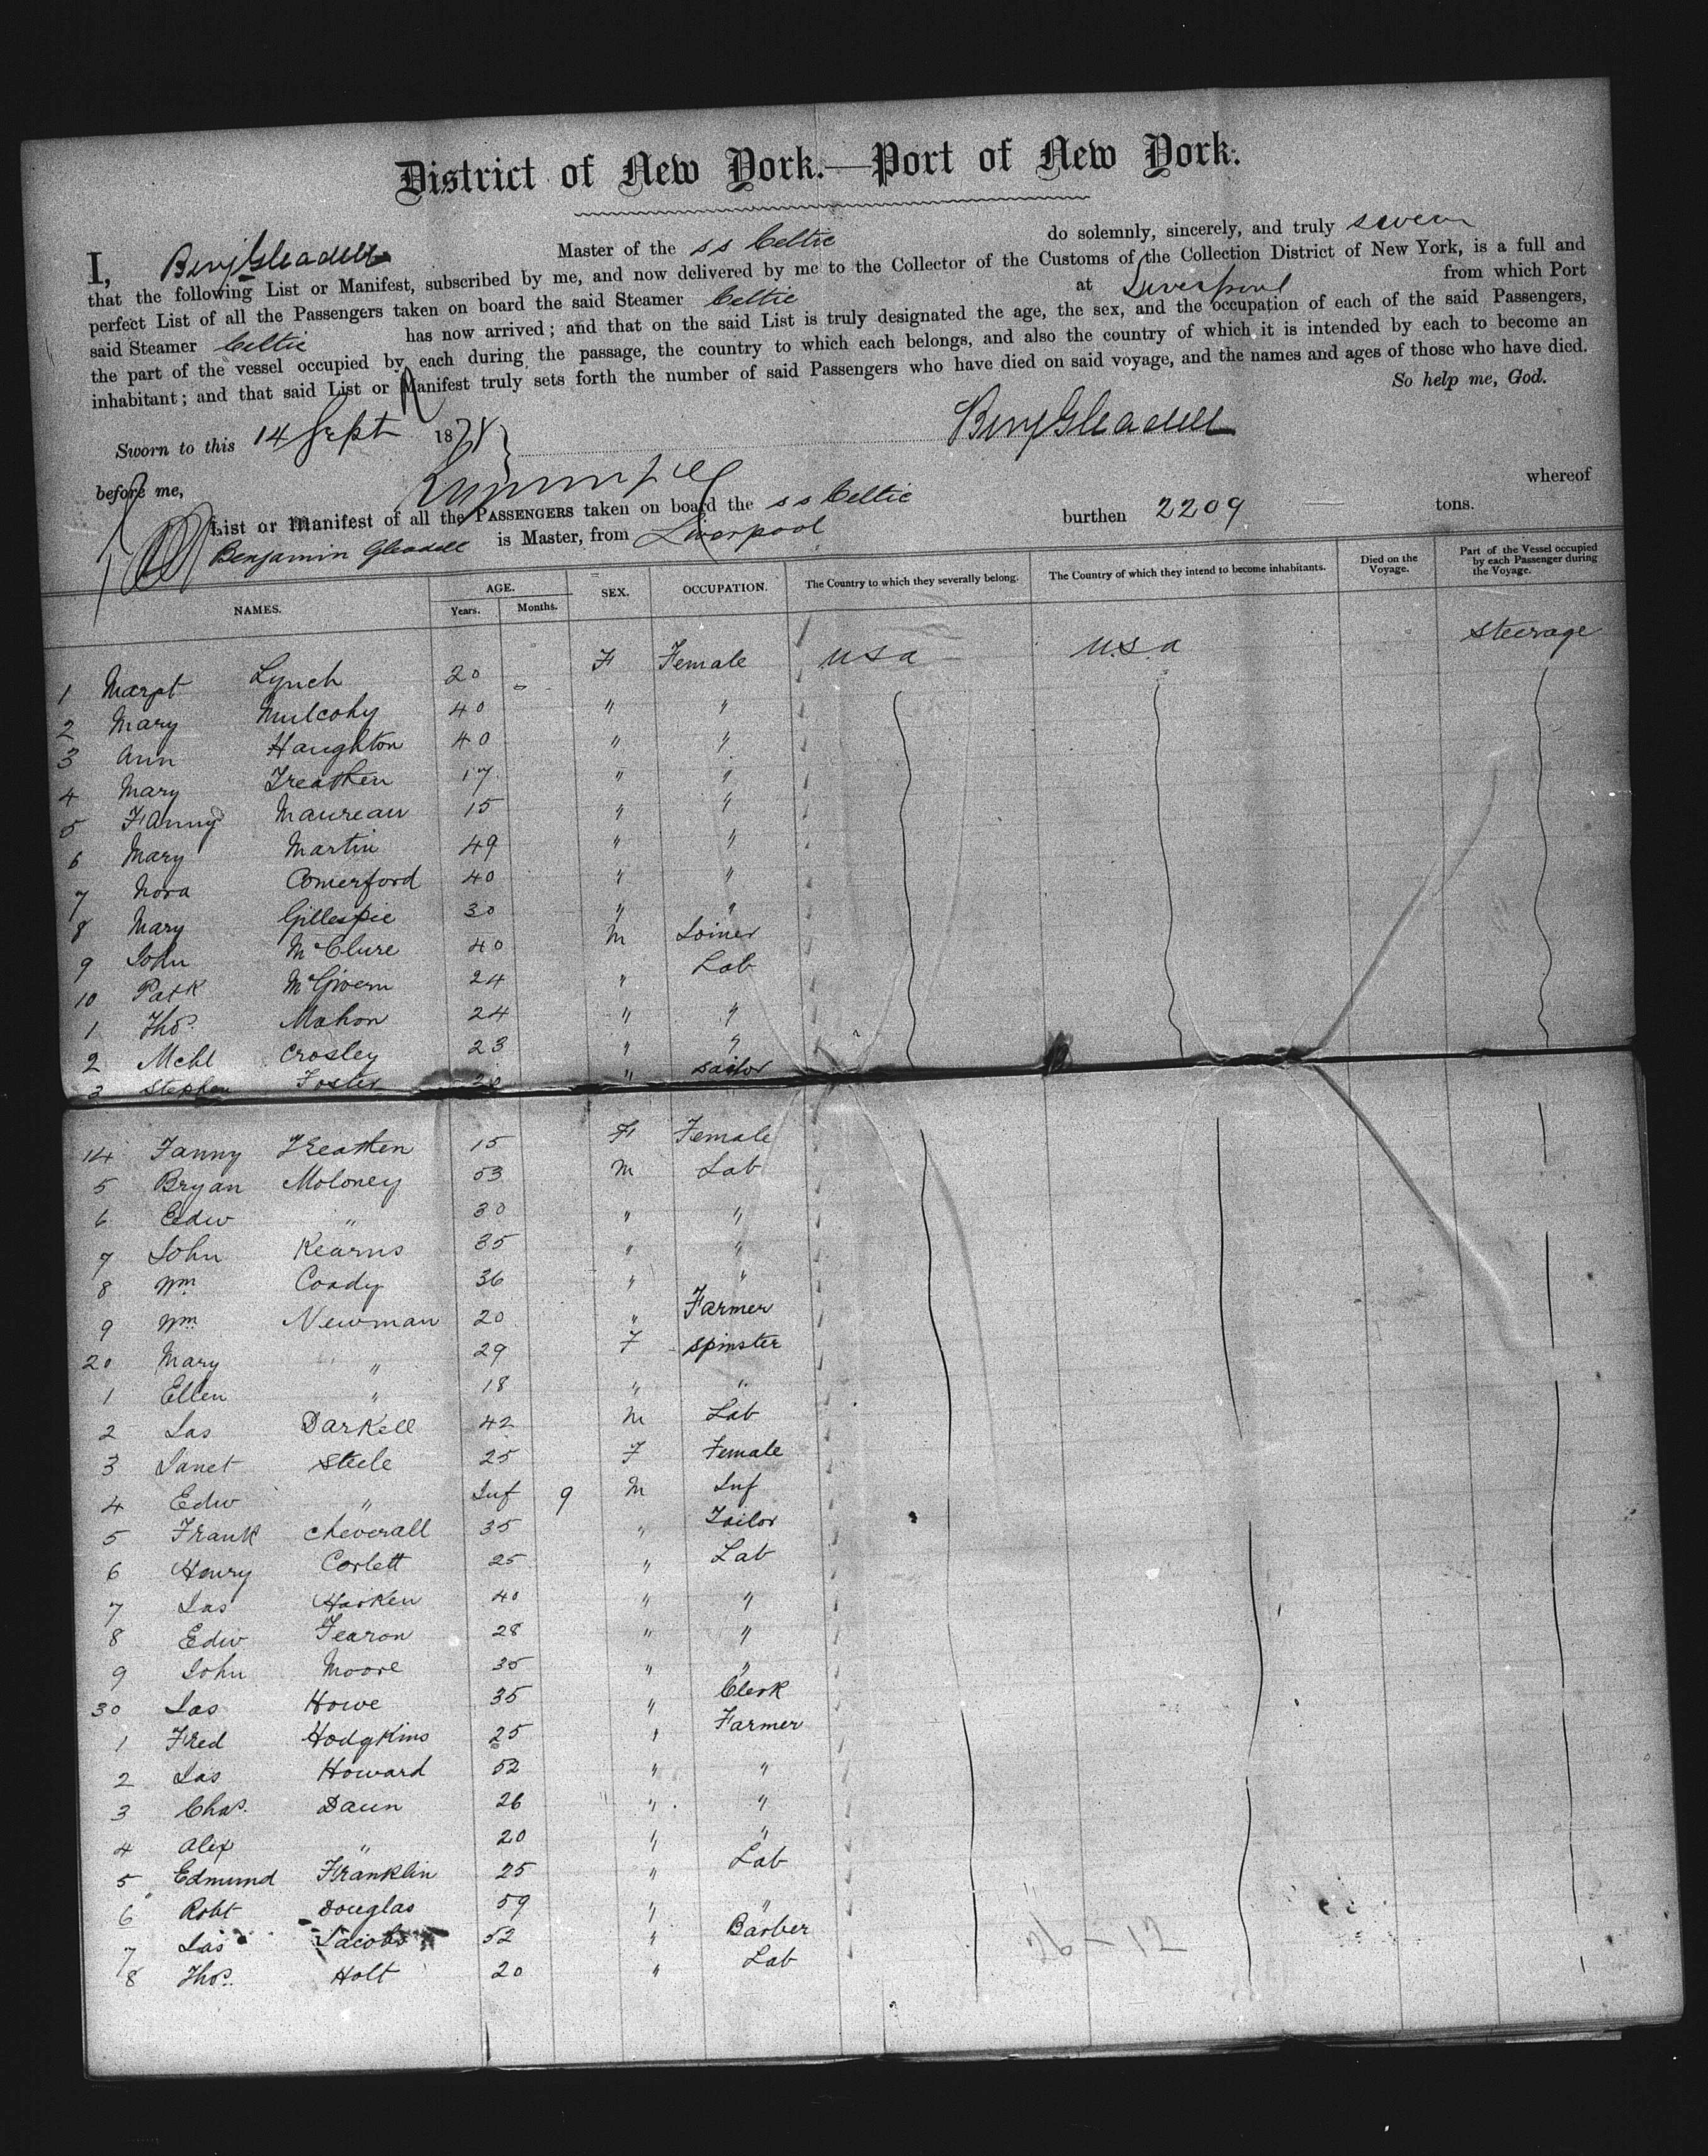 District of New York.—Port of New York.
I, Benj Gleadell Master of the s s Celtic do solemnly, sincerely, and truly swear
that the following List or Manifest, subscribed by me, and now delivered by me to the Collector of the Customs of the Collection District of New York, is a full and
perfect List of all the Passengers taken on board the said Steamer Celtic at Liverpool from which Port
said Steamer Celtic has now arrived; and that on the said List is truly designated the age, the sex, and the occupation of each of the said Passengers,
the part of the vessel occupied by each during the passage, the country to which each belongs, and also the country of which it is intended by each to become an
inhabitant; and that said List or Manifest truly sets forth the number of said Passengers who have died on said voyage, and the names and ages of those who have died.
So help me, God.
Sworn to this 14 Sept 1878 Benj Gleadell
before me,
List or Manifest of all the PASSENGERS taken on board the s s Celtic burthen 2209 tons. whereof
Benjamin Gleadell is Master, from Liverpool
NAMES. AGE. Years. Months. SEX. OCCUPATION. The Country to which they severally belong. The Country of which they intend to become inhabitants. Died on the Voyage. Part of the Vessel occupied by each Passenger during the Voyage.
1 Margt Lynch 20 F Female USA U.S.A Steerage
2 Mary Mulcohy 40 " "
3 Ann Haughton 40 " "
4 Mary Treathen 17 " "
5 Fanny Maureau 15 " "
6 Mary Martin 49 " "
7 Nora Comerford 40 " "
8 Mary Gillespie 30 " "
9 John McClure 40 M Joiner
10 Patk McGivern 24 " Lab
1 Thos. Mahon 24 " "
2 Mchl Crosley 23 " "
3 Stephen Foster 20 " Sailor
14 Fanny Treathen 15 F Female
5 Bryan Moloney 53 M Lab
6 Edw " 30 " "
7 John Kearns 35 " "
8 Wm Coady 36 " "
9 Wm Newman 20 " Farmer
20 Mary " 29 F Spinster
1 Ellen " 18 " "
2 Jas Darkell 42 M Lab
3 Janet Steele 25 F Female
4 Edw " Inf 9 M Inf
5 Frank Cheverall 35 " Tailor
6 Henry Corlett 25 " Lab
7 Jas Harken 40 " "
8 Edw Fearon 28 " "
9 John Moore 35 " "
30 Jas Howe 35 " Clerk
1 Fred Hodgkins 25 " Farmer
2 Jas Howard 52 " "
3 Chas. Daun 26 " "
4 Alex " 20 " "
5 Edmund Franklin 25 " Lab
6 Robt Douglas 59 " "
7 Jas Jacobs 52 " Barber
8 Thos. Holt 20 " Lab
26-12